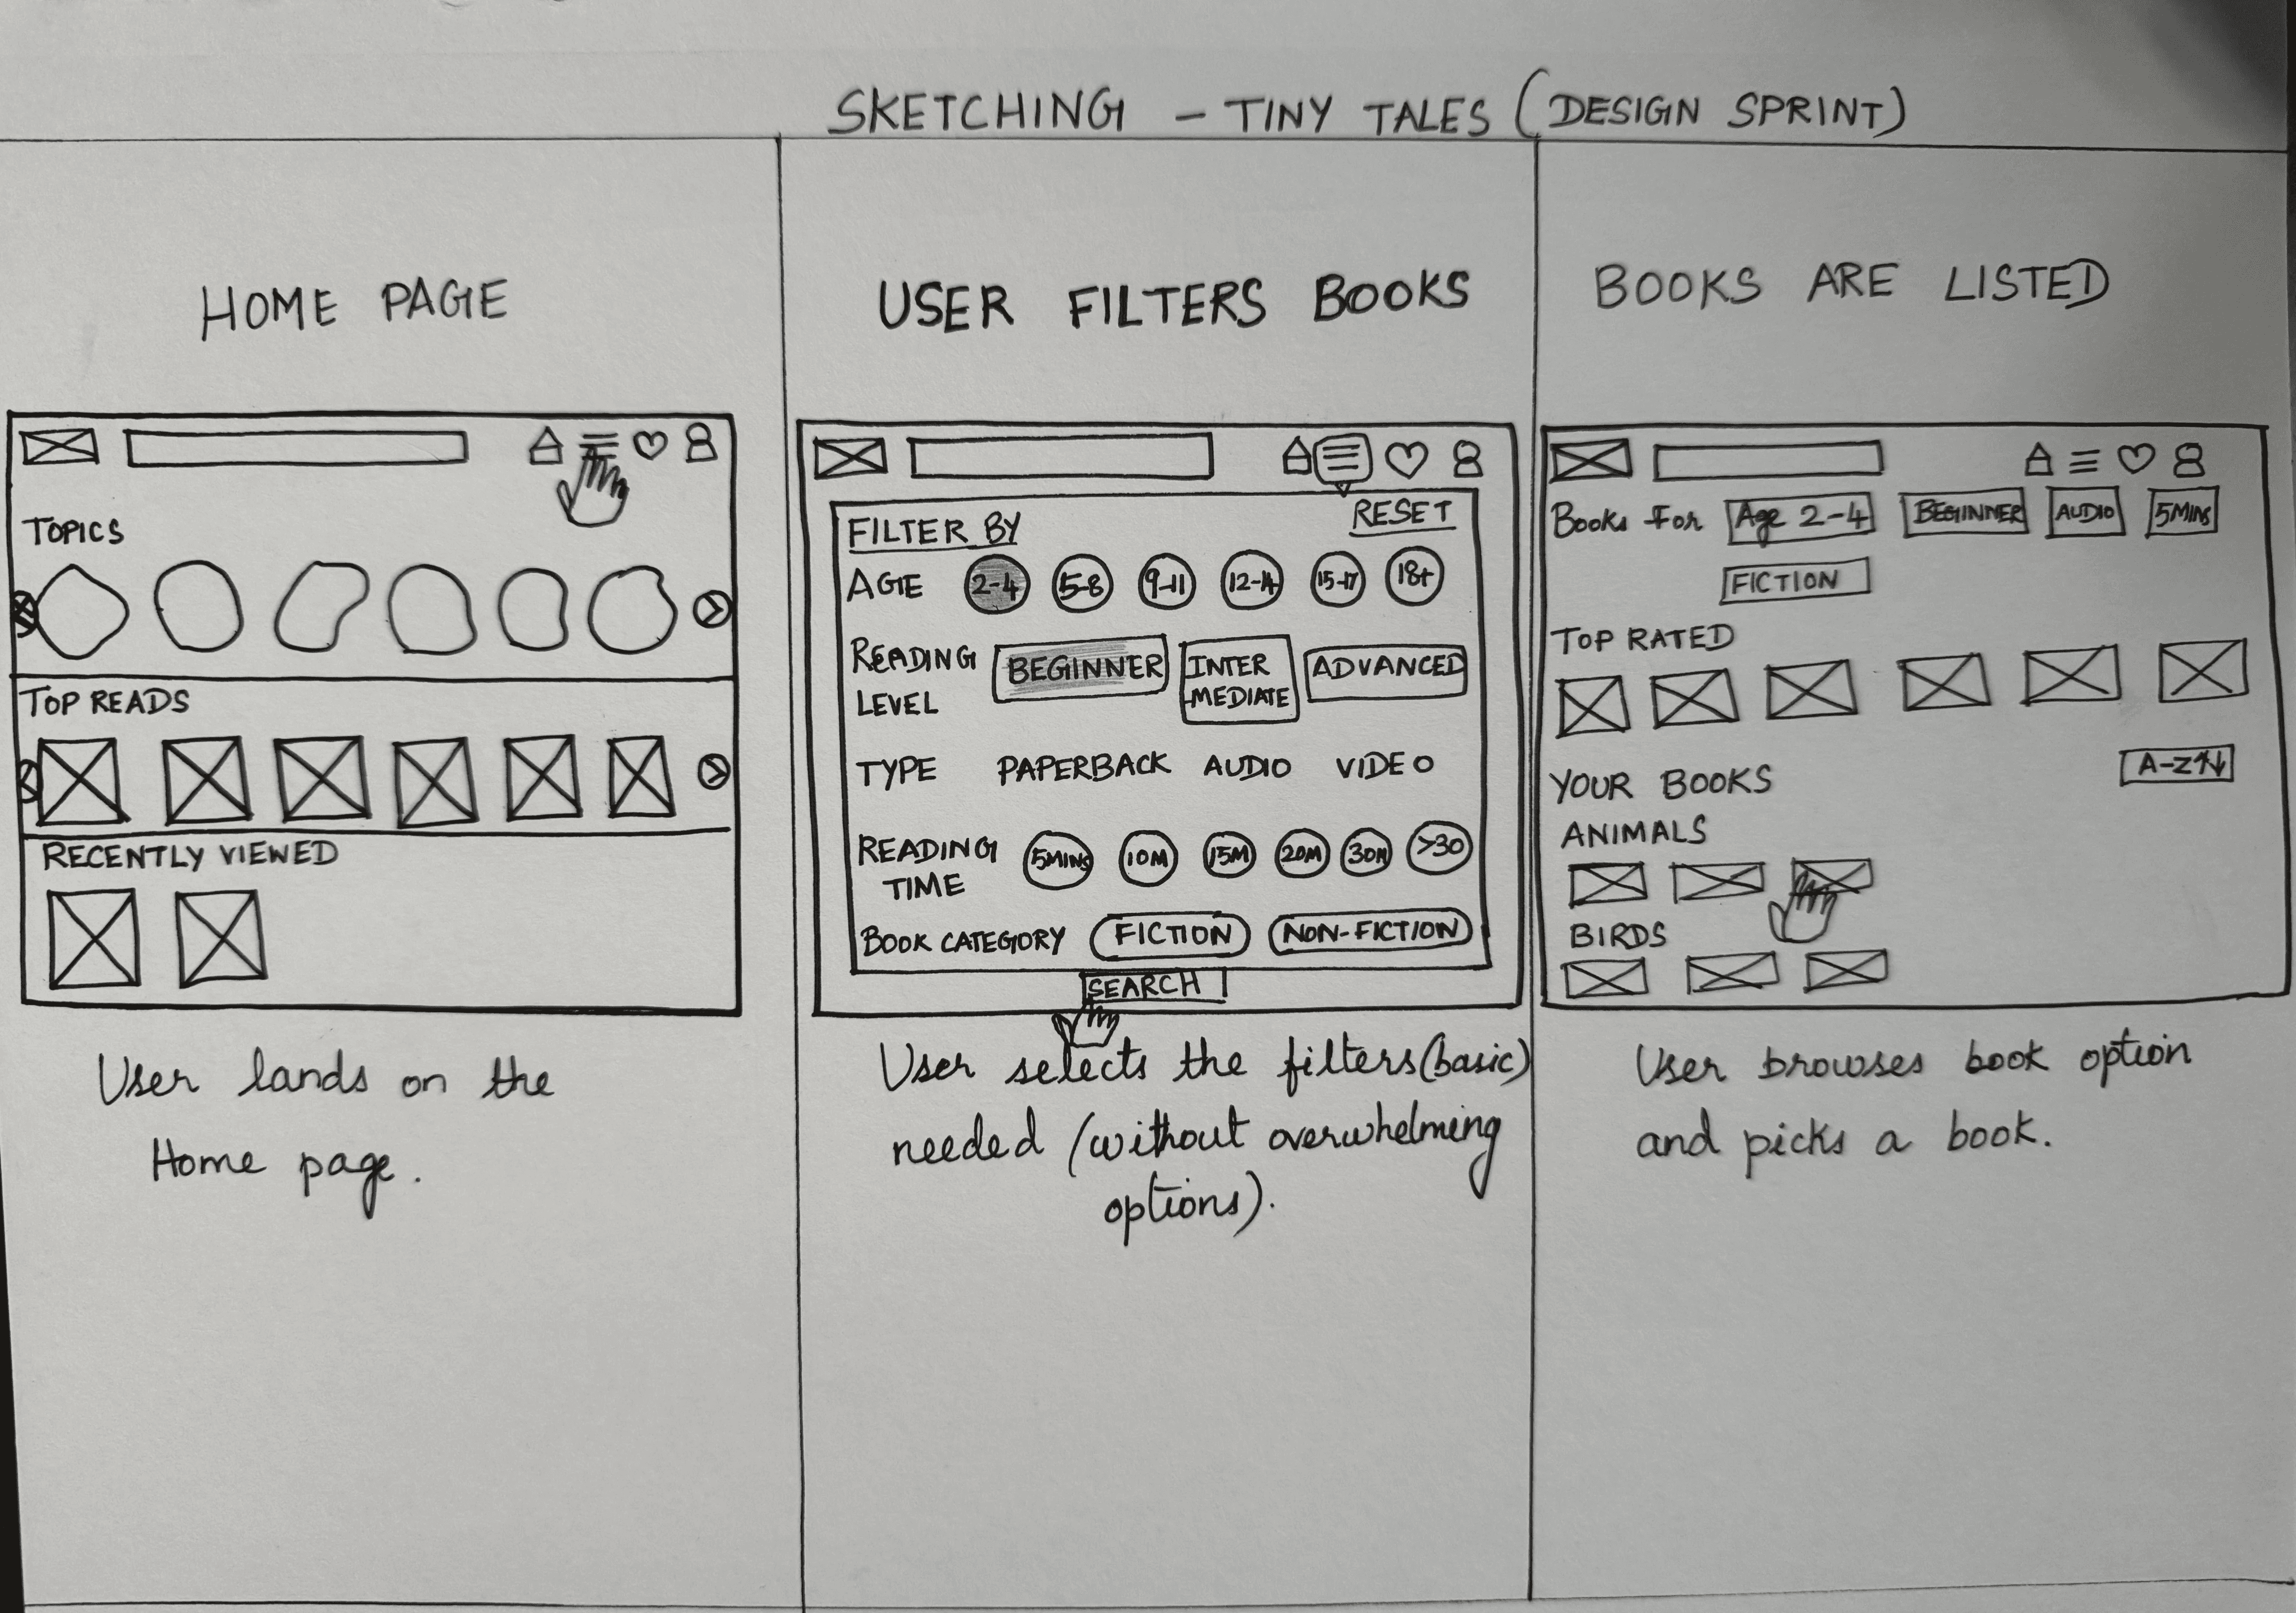 SKETCHING – TINY TALES (DESIGN SPRINT)
HOME PAGE
TOPICS
TOP READS
RECENTLY VIEWED
User lands on the
Home page.
USER FILTERS BOOKS
FILTER BY
RESET
AGE 2-4 5-8 9-11 12-14 15-17 18+
READING
LEVEL
BEGINNER
INTER
-MEDIATE
ADVANCED
TYPE PAPERBACK AUDIO VIDEO
READING
TIME
5MINS 10M 15M 20M 30M >30
BOOK CATEGORY FICTION NON-FICTION
SEARCH
User selects the filters(basic)
needed (without overwhelming
options).
BOOKS ARE LISTED
Books For Age 2-4 BEGINNER AUDIO 5MINS
FICTION
TOP RATED
A-Z↑↓
YOUR BOOKS
ANIMALS
BIRDS
User browses book option
and picks a book.